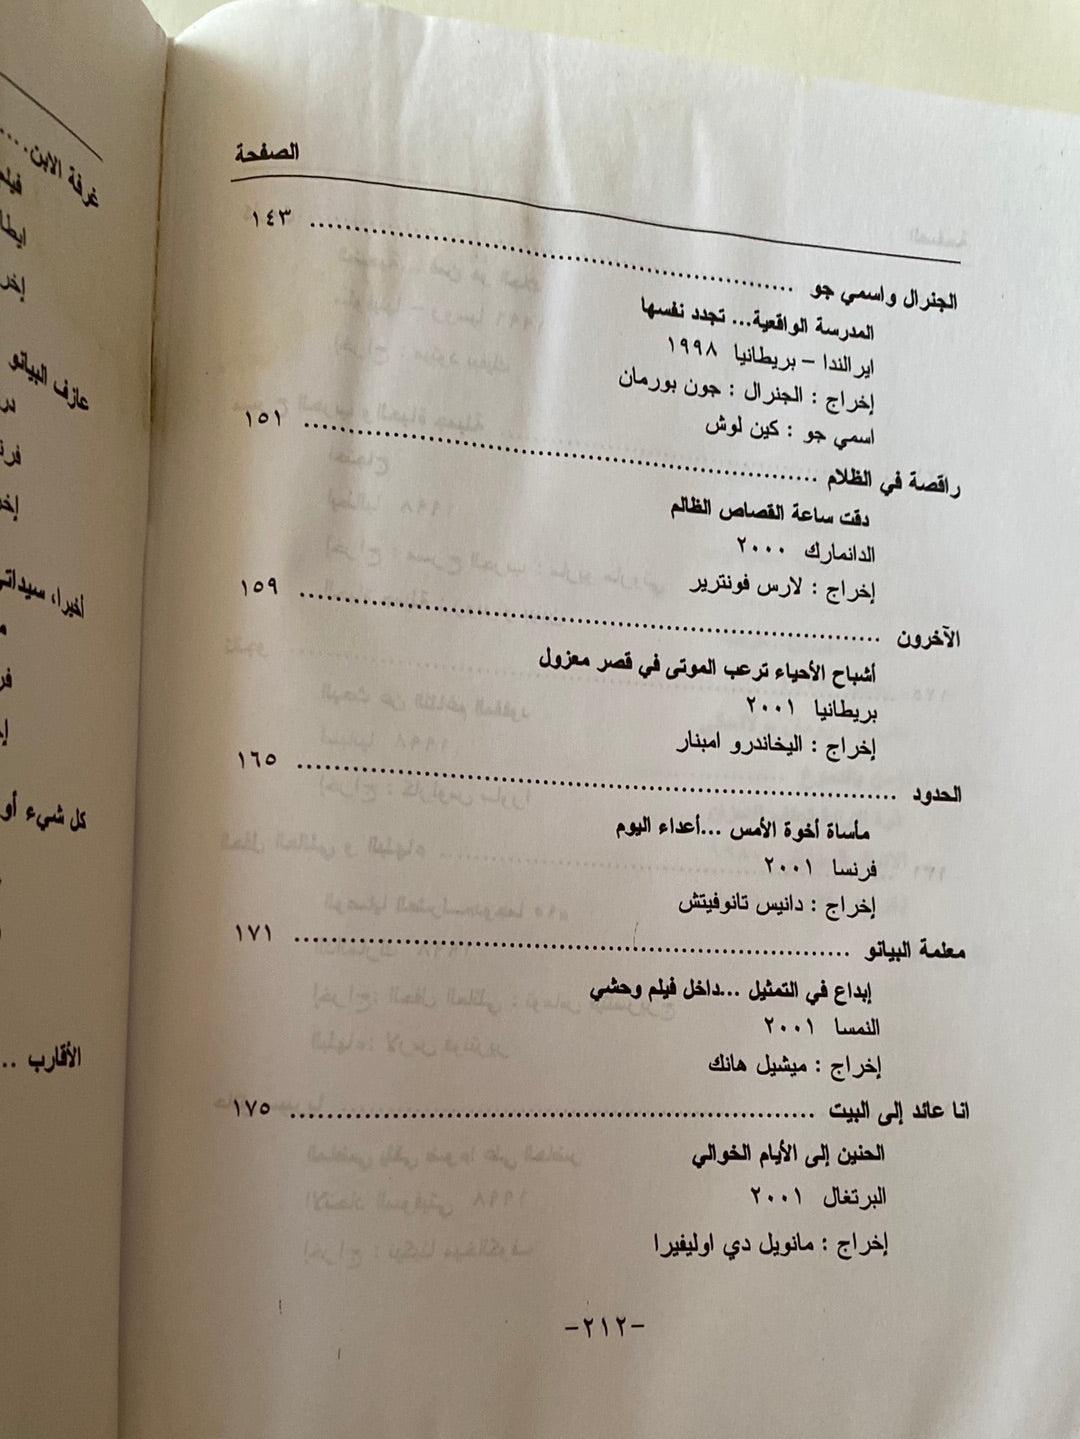 الصفحة
الجنرال واسمي جو ........ ١٤٣
المدرسة الواقعية... تجدد نفسها
ايرالندا – بريطانيا ١٩٩٨
إخراج : الجنرال : جون بورمان
اسمي جو : كين لوش
راقصة في الظلام ........ ١٥١
دقت ساعة القصاص الظالم
الدانمارك ٢٠٠٠
إخراج : لارس فونترير
الآخرون ........ ١٥٩
أشباح الأحياء ترعب الموتى في قصر معزول
بريطانيا ٢٠٠١
إخراج : اليخاندرو امبنار
الحدود ........ ١٦٥
مأساة أخوة الأمس ...أعداء اليوم
فرنسا ٢٠٠١
إخراج : دانيس تانوفيتش
معلمة البيانو ........ ١٧١
إبداع في التمثيل ...داخل فيلم وحشي
النمسا ٢٠٠١
إخراج : ميشيل هانك
انا عائد إلى البيت ........ ١٧٥
الحنين إلى الأيام الخوالي
البرتغال ٢٠٠١
إخراج : مانويل دي اوليفيرا
-٢١٢-
غرفة الابن....
عازف البيانو
أخيرا، سيداتي
كل شيء
الأقارب ..